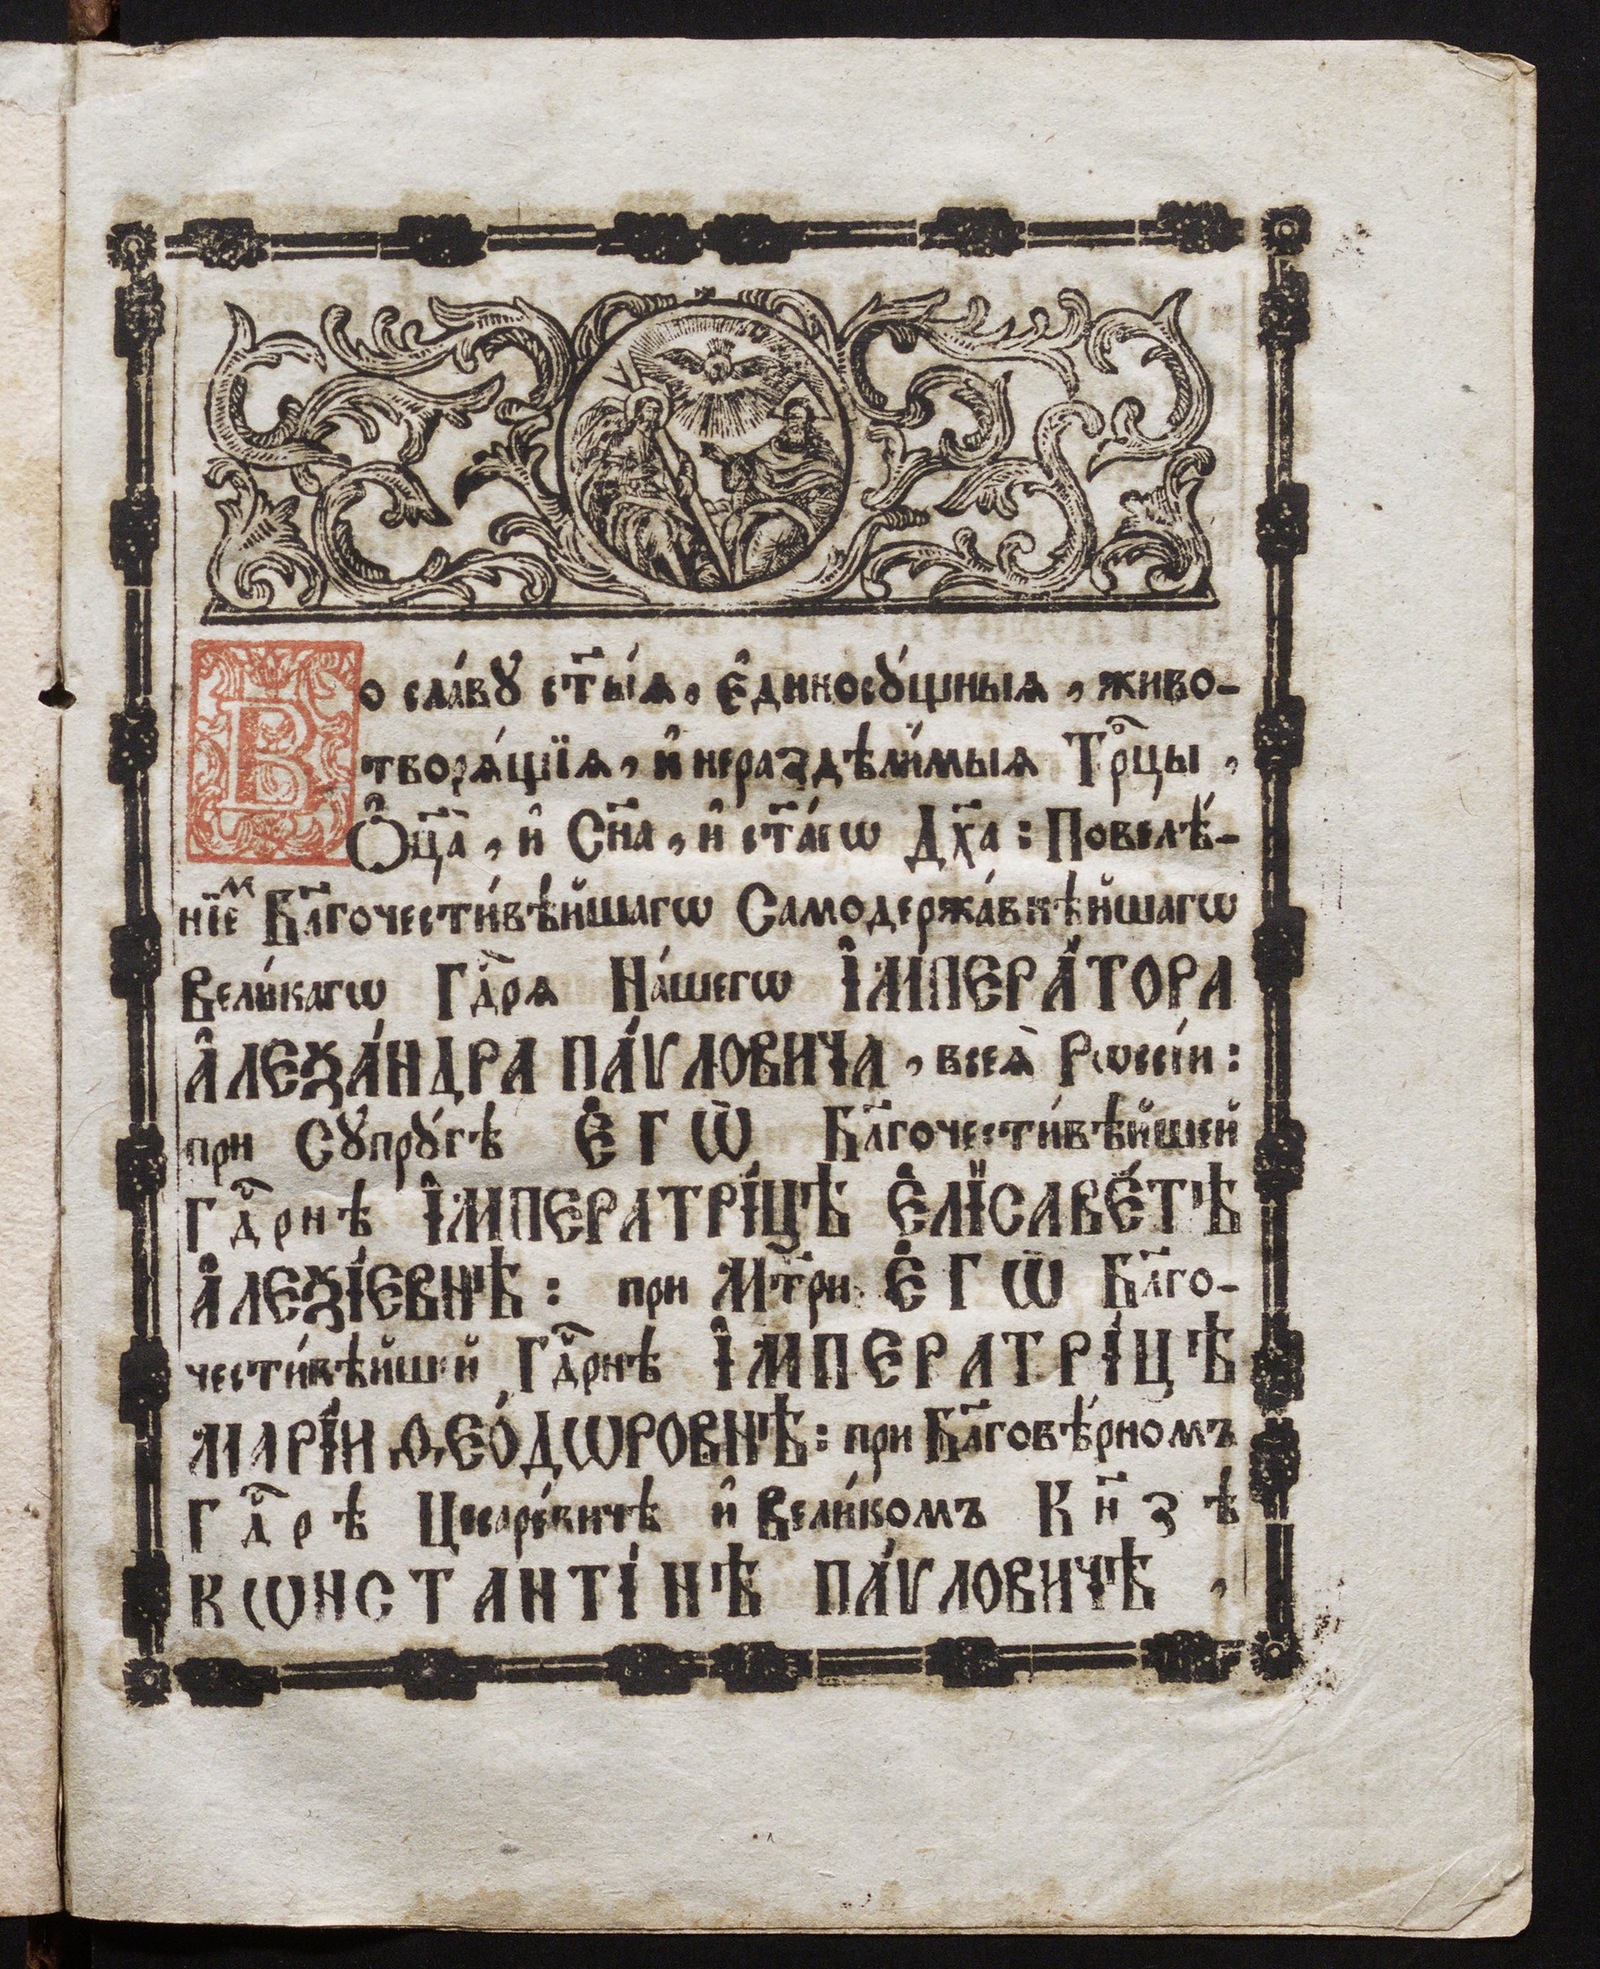 Во сла́вꙋ ст҃ы́ѧ, є҆диносꙋ́щныѧ, живо-
творѧ́щїѧ, и҆ нераздѣли́мыѧ Трⷪ҇цы,
Ѻ҆ц҃а̀, и҆ Сн҃а, и҆ ст҃а́гѡ Дх҃а: Повелѣ́-
нїеⷨ Бл҃гочести́вѣйшагѡ Самодержа́внѣйшагѡ
Вели́кагѡ Гдⷭ҇рѧ На́шегѡ І҆МПЕРА́ТОРА
А҆ЛЕѮА́НДРА ПА́ѴЛОВИЧА, всеѧ̀ Рѡссі́и:
при Сꙋпрꙋ́гѣ Є҆ГѠ̀ Бл҃гочести́вѣйшей
Гдⷭ҇рнѣ І҆МПЕРАТРІ́ЦѢ Є҆ЛІСАВЕ́ТѢ
А҆ЛЕѮІ́ЕВНѢ: при Мт҃ри Є҆ГѠ̀ Бл҃го-
чести́вѣйшей Гдⷭ҇рнѣ І҆МПЕРАТРІ́ЦѢ
МАРІ́И ѲЕО́ДѠРОВНѢ: при Бл҃говѣ́рномъ
Гдⷭ҇рѣ Цесаре́вичѣ и҆ Вели́комъ Кн҃зѣ
КѠНСТАНТІ́НѢ ПА́ѴЛОВИЧѢ,